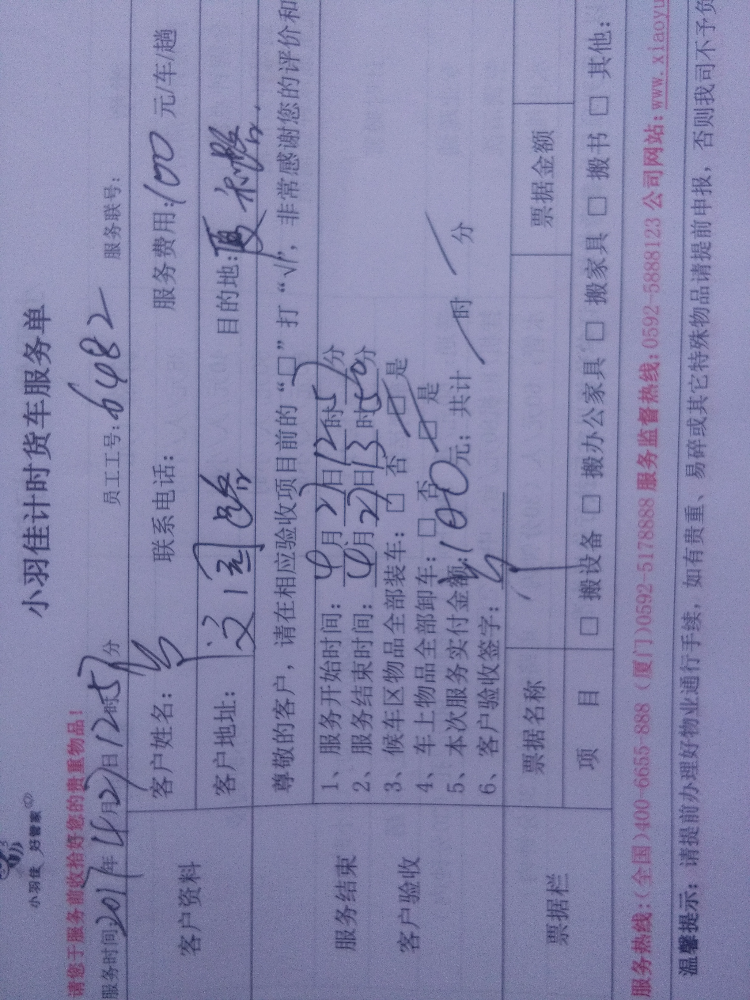 小羽佳 好管家
小羽佳计时货车服务单
请您于服务前收拾好您的贵重物品!
服务时间:2017年4月27日12时57分 员工工号:6482 服务联号:
客户资料
客户姓名: 联系电话: 服务费用:100 元/车/趟
客户地址: 目的地:
尊敬的客户,请在相应验收项目前的“□”打“√”,非常感谢您的评价和
服务结束
客户验收
1、服务开始时间:4月27日12时57分
2、服务结束时间:4月27日13时50分
3、候车区物品全部装车:□ 否 □ 是
4、车上物品全部卸车:□ 否 □ 是
5、本次服务实付金额:100元;共计 时 分
6、客户验收签字:
票据栏
票据名称 票据金额
项 目 □ 搬设备 □ 搬办公家具 □ 搬家具 □ 搬书 □ 其他:
服务热线:(全国)400-6655-888 (厦门)0592-5178888 服务监督热线:0592-5888123 公司网站:www.xiaoyu
温馨提示:请提前办理好物业通行手续,如有贵重、易碎或其它特殊物品请提前申报,否则我司不予负